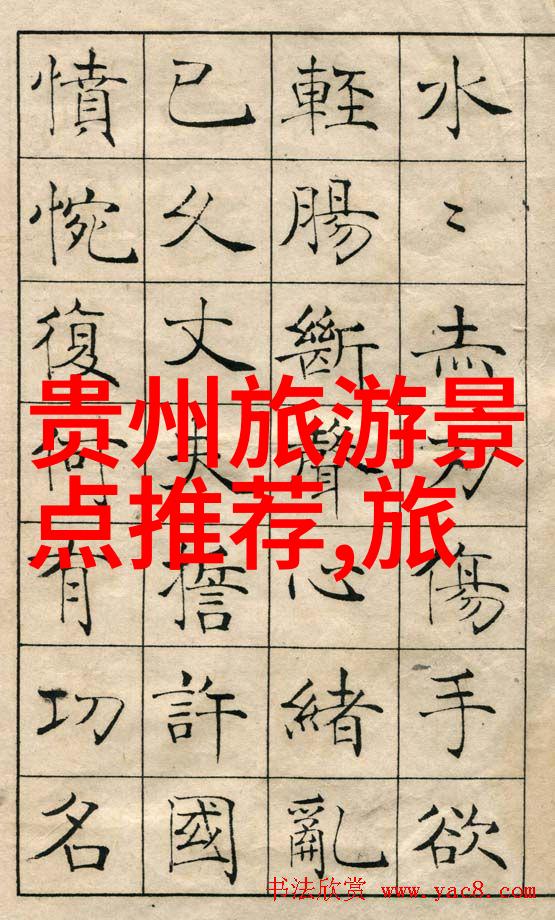 水〻赤刃傷手欲
輕腸斷聲心緒亂
已久丈夫誓許國
憤惋復有功名
贵州旅游景
点推荐,旅
书法欣赏 www.yac8.com